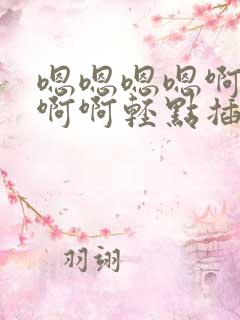 嗯嗯嗯嗯啊
啊啊輕點插
羽翊